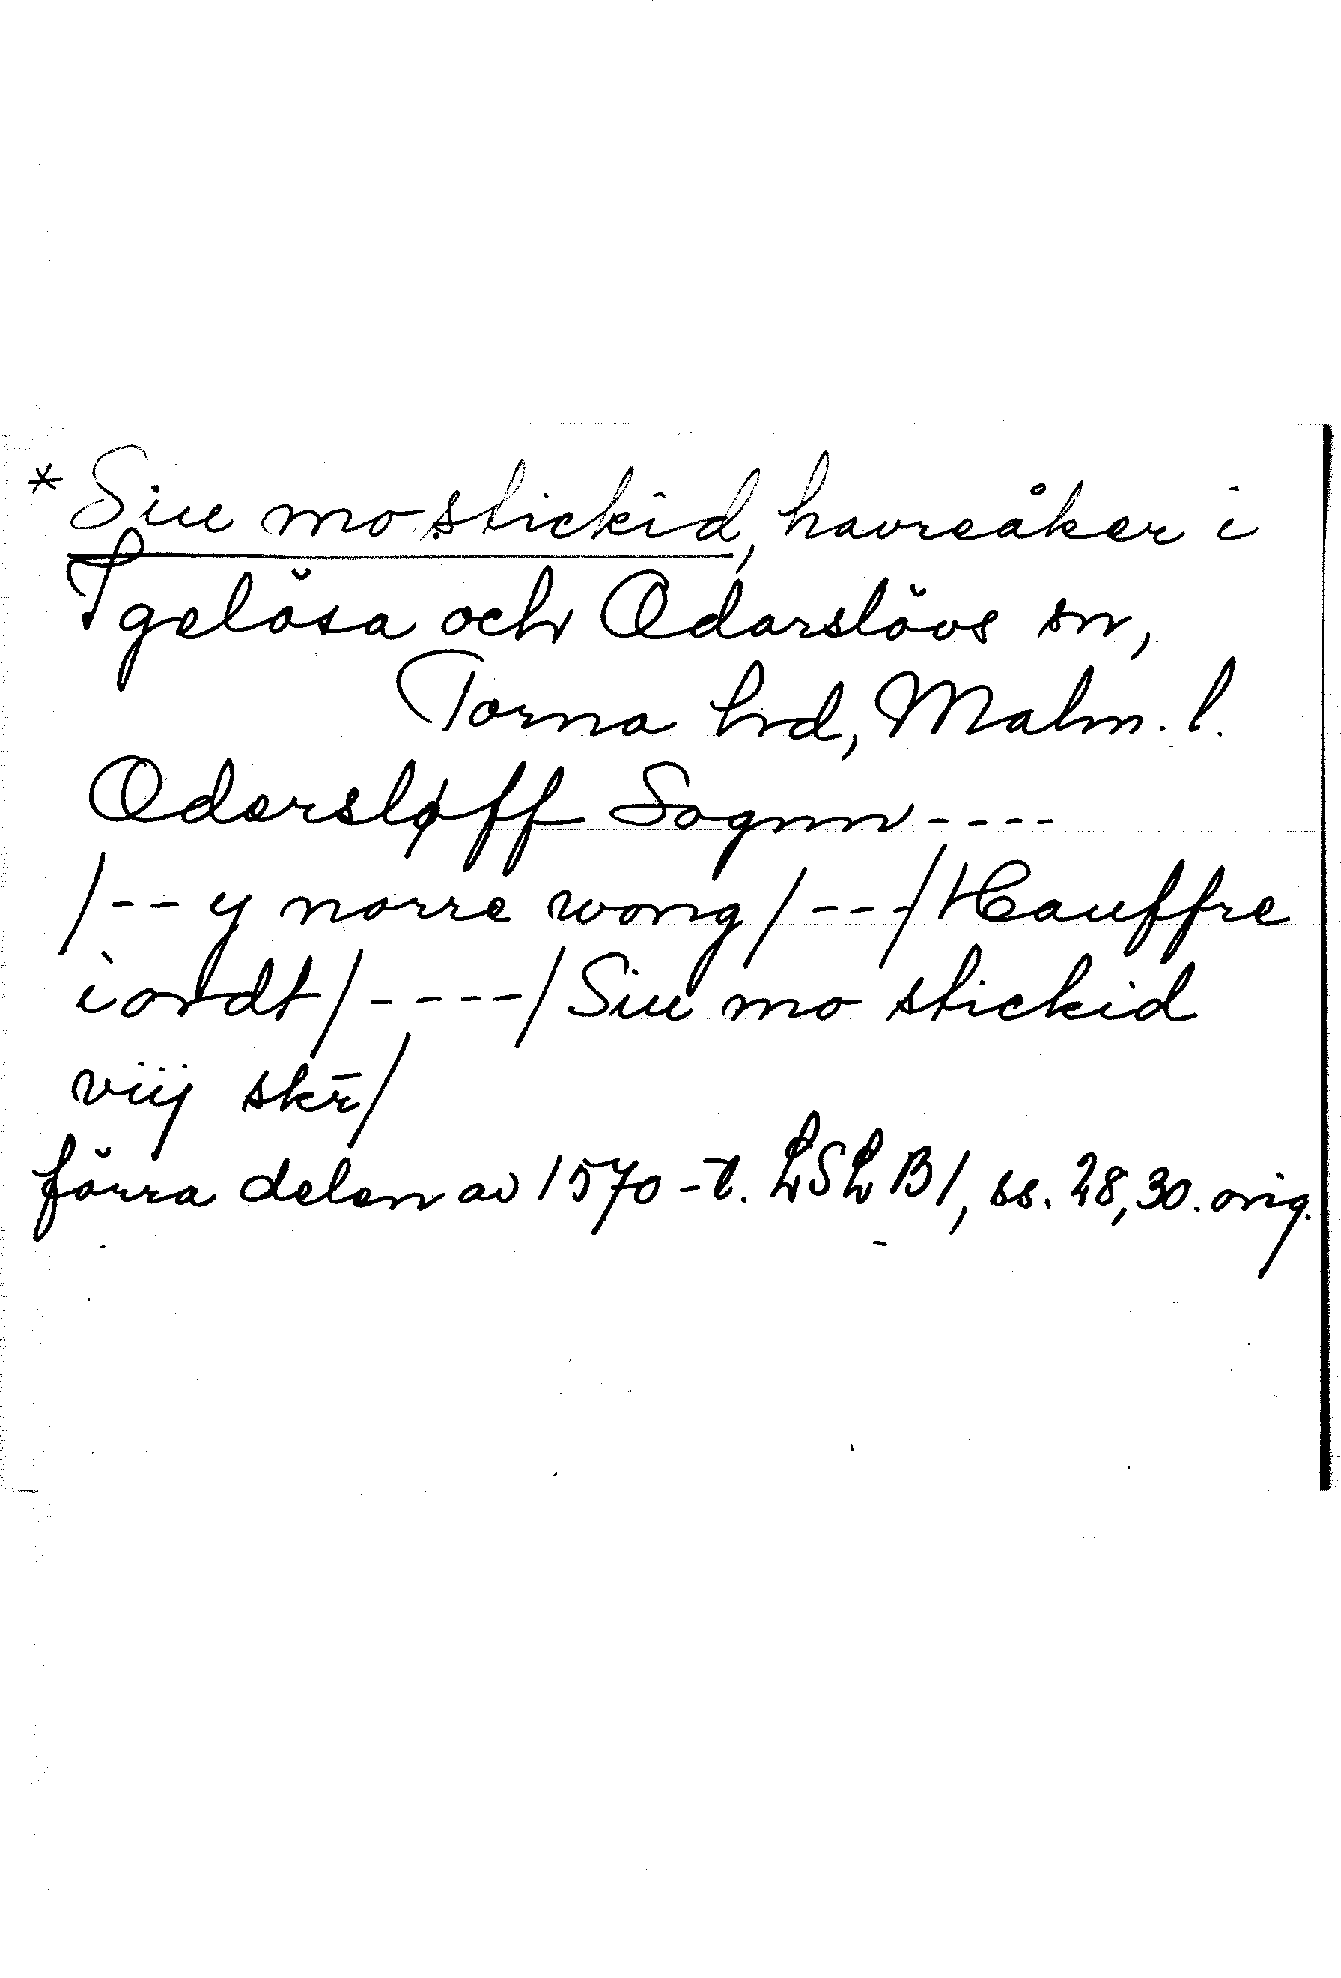 * Siu mo stickid, havreåker i
Igelösa och Odarslövs sn,
Torna hrd, Malm. l.
Odersløff Sognn ----
/-- y norre wong/---/Hauffre
iordt/----/Siu mo stickid
viij skr̄/
förra delen av 1570-t. LSL B1, ss. 28, 30. orig.